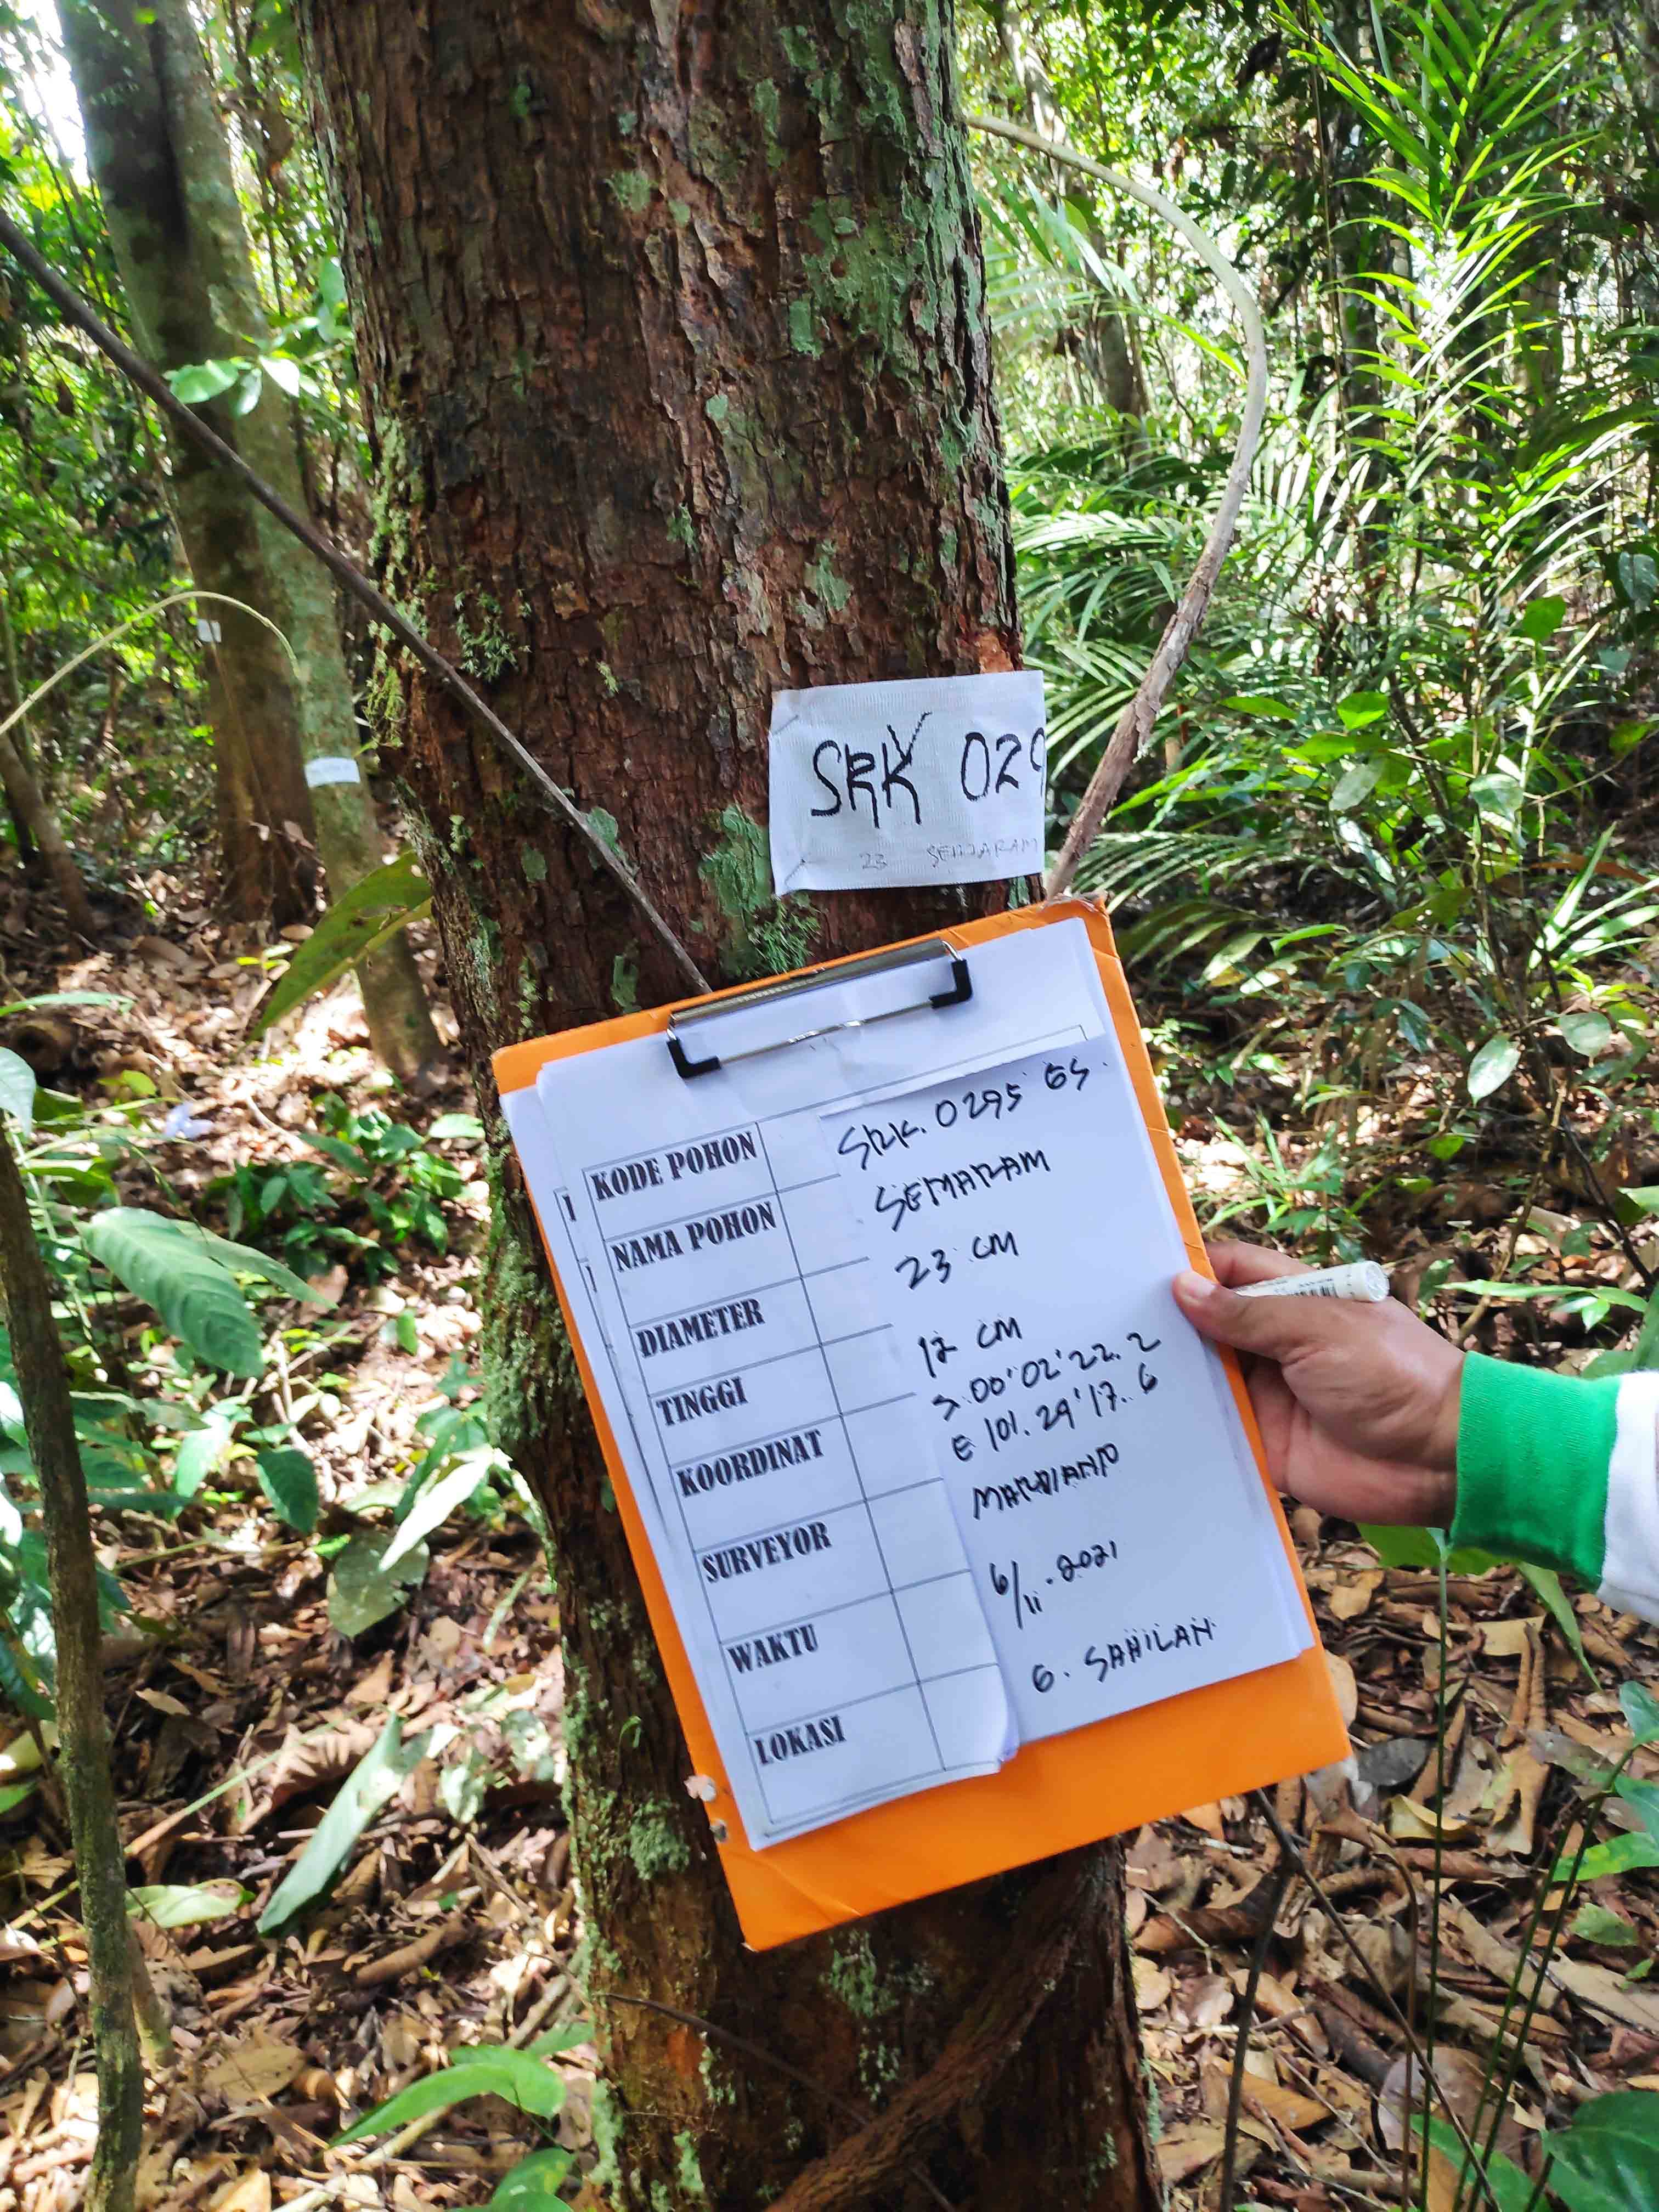 SRK 029
23 SEMARAM
KODE POHON SRK. 0295 GS.
NAMA POHON SEMARAM
DIAMETER 23 CM
TINGGI 12 CM
KOORDINAT S. 00'02'22.2
E 101.29'17.6
SURVEYOR MARDIANO
WAKTU 6/11.2021
LOKASI G. SAHILAN